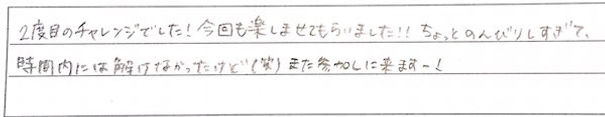 2度目のチャレンジでした！今回も楽しませてもらいました！！ちょっとのんびりしすぎて、
時間内には解けなかったけど（笑）また参加しに来ますー！